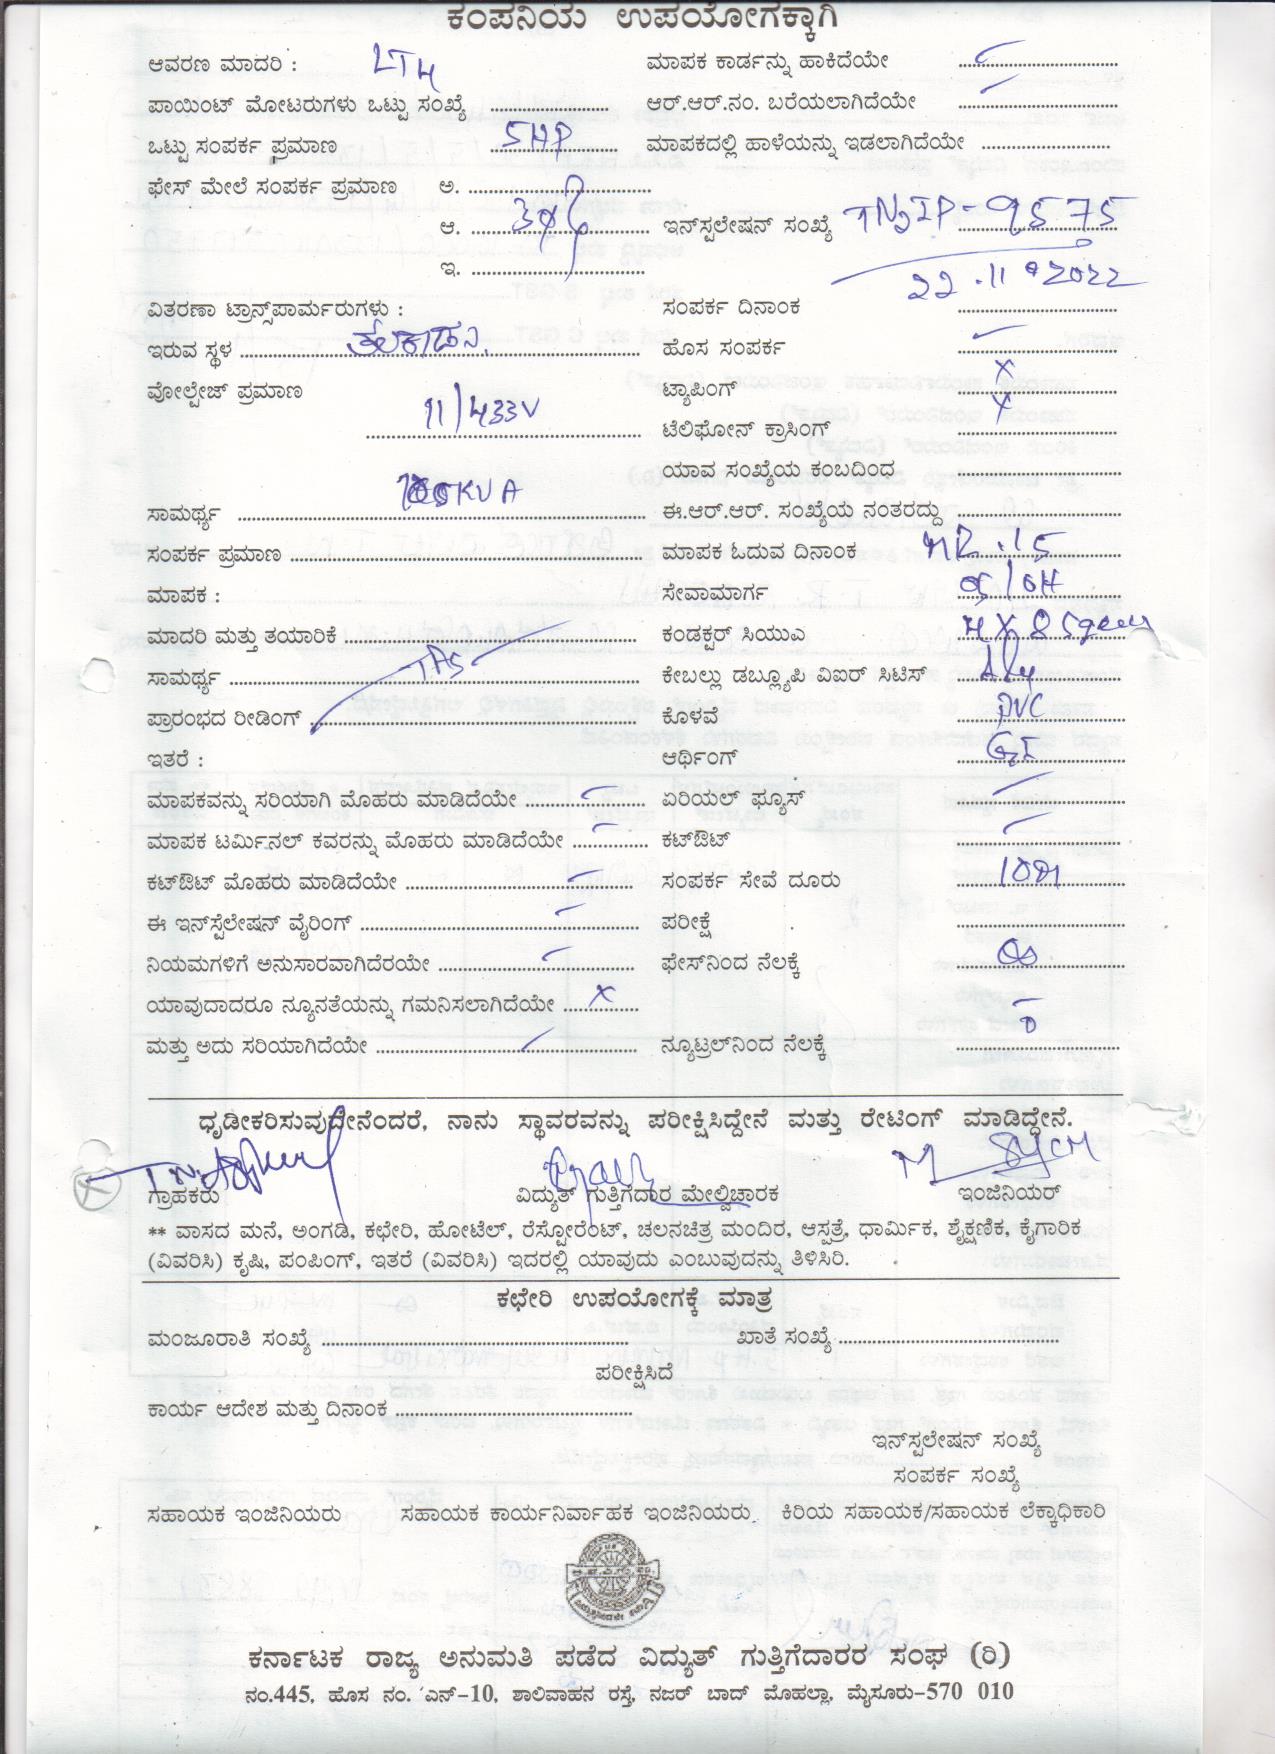 ಕಂಪನಿಯ ಉಪಯೋಗಕ್ಕಾಗಿ
ಆವರಣ ಮಾದರಿ : LT4 ಮಾಪಕ ಕಾರ್ಡನ್ನು ಹಾಕಿದೆಯೇ
ಪಾಯಿಂಟ್ ಮೋಟರುಗಳು ಒಟ್ಟು ಸಂಖ್ಯೆ ಆರ್.ಆರ್.ನಂ. ಬರೆಯಲಾಗಿದೆಯೇ
ಒಟ್ಟು ಸಂಪರ್ಕ ಪ್ರಮಾಣ 5HP ಮಾಪಕದಲ್ಲಿ ಹಾಳೆಯನ್ನು ಇಡಲಾಗಿದೆಯೇ
ಫೇಸ್ ಮೇಲೆ ಸಂಪರ್ಕ ಪ್ರಮಾಣ ಅ.
ಆ. ಇನ್‌ಸ್ಪಲೇಷನ್ ಸಂಖ್ಯೆ TNJIP-9575
ಇ. 22.11.2022
ವಿತರಣಾ ಟ್ರಾನ್ಸ್‌ಪಾರ್ಮರುಗಳು : ಸಂಪರ್ಕ ದಿನಾಂಕ
ಇರುವ ಸ್ಥಳ ಹೊಸ ಸಂಪರ್ಕ
ವೋಲ್ಟೇಜ್ ಪ್ರಮಾಣ ಟ್ಯಾಪಿಂಗ್ x
11/433V ಟೆಲಿಫೋನ್ ಕ್ರಾಸಿಂಗ್ x
ಯಾವ ಸಂಖ್ಯೆಯ ಕಂಬದಿಂಧ
ಸಾಮರ್ಥ್ಯ KVA ಈ.ಆರ್.ಆರ್. ಸಂಖ್ಯೆಯ ನಂತರದ್ದು
ಸಂಪರ್ಕ ಪ್ರಮಾಣ ಮಾಪಕ ಓದುವ ದಿನಾಂಕ MR.15
ಮಾಪಕ : ಸೇವಾಮಾರ್ಗ OH
ಮಾದರಿ ಮತ್ತು ತಯಾರಿಕೆ ಕಂಡಕ್ಟರ್ ಸಿಯುಎ
ಸಾಮರ್ಥ್ಯ TAS ಕೇಬಲ್ಲು ಡಬ್ಲ್ಯೂಪಿ ವಿಐರ್ ಸಿಟಿಸ್
ಪ್ರಾರಂಭದ ರೀಡಿಂಗ್ ಕೊಳವೆ PVC
ಇತರೆ : ಆರ್ಥಿಂಗ್ GI
ಮಾಪಕವನ್ನು ಸರಿಯಾಗಿ ಮೊಹರು ಮಾಡಿದೆಯೇ ಏರಿಯಲ್ ಫ್ಯೂಸ್
ಮಾಪಕ ಟರ್ಮಿನಲ್ ಕವರನ್ನು ಮೊಹರು ಮಾಡಿದೆಯೇ ಕಟ್‌ಔಟ್
ಕಟ್‌ಔಟ್ ಮೊಹರು ಮಾಡಿದೆಯೇ ಸಂಪರ್ಕ ಸೇವೆ ದೂರು
ಈ ಇನ್‌ಸ್ಟೆಲೇಷನ್ ವೈರಿಂಗ್ ಪರೀಕ್ಷೆ
ನಿಯಮಗಳಿಗೆ ಅನುಸಾರವಾಗಿದೆರಯೇ ಫೇಸ್‌ನಿಂದ ನೆಲಕ್ಕೆ
ಯಾವುದಾದರೂ ನ್ಯೂನತೆಯನ್ನು ಗಮನಿಸಲಾಗಿದೆಯೇ x
ಮತ್ತು ಅದು ಸರಿಯಾಗಿದೆಯೇ ನ್ಯೂಟ್ರಲ್‌ನಿಂದ ನೆಲಕ್ಕೆ
ಧೃಡೀಕರಿಸುವುದೇನೆಂದರೆ, ನಾನು ಸ್ಥಾವರವನ್ನು ಪರೀಕ್ಷಿಸಿದ್ದೇನೆ ಮತ್ತು ರೇಟಿಂಗ್ ಮಾಡಿದ್ದೇನೆ.
ಗ್ರಾಹಕರು ವಿದ್ಯುತ್ ಗುತ್ತಿಗೆದಾರ ಮೇಲ್ವಿಚಾರಕ ಇಂಜಿನಿಯರ್
** ವಾಸದ ಮನೆ, ಅಂಗಡಿ, ಕಛೇರಿ, ಹೋಟೆಲ್, ರೆಸ್ಟೋರೆಂಟ್, ಚಲನಚಿತ್ರ ಮಂದಿರ, ಆಸ್ಪತ್ರೆ, ಧಾರ್ಮಿಕ, ಶೈಕ್ಷಣಿಕ, ಕೈಗಾರಿಕ
(ವಿವರಿಸಿ) ಕೃಷಿ, ಪಂಪಿಂಗ್, ಇತರೆ (ವಿವರಿಸಿ) ಇದರಲ್ಲಿ ಯಾವುದು ಎಂಬುವುದನ್ನು ತಿಳಿಸಿರಿ.
ಕಛೇರಿ ಉಪಯೋಗಕ್ಕೆ ಮಾತ್ರ
ಮಂಜೂರಾತಿ ಸಂಖ್ಯೆ ಖಾತೆ ಸಂಖ್ಯೆ
ಪರೀಕ್ಷಿಸಿದೆ
ಕಾರ್ಯ ಆದೇಶ ಮತ್ತು ದಿನಾಂಕ
ಇನ್‌ಸ್ಪಲೇಷನ್ ಸಂಖ್ಯೆ
ಸಂಪರ್ಕ ಸಂಖ್ಯೆ
ಸಹಾಯಕ ಇಂಜಿನಿಯರು ಸಹಾಯಕ ಕಾರ್ಯನಿರ್ವಾಹಕ ಇಂಜಿನಿಯರು ಕಿರಿಯ ಸಹಾಯಕ/ಸಹಾಯಕ ಲೆಕ್ಕಾಧಿಕಾರಿ
ಕರ್ನಾಟಕ ರಾಜ್ಯ ಅನುಮತಿ ಪಡೆದ ವಿದ್ಯುತ್ ಗುತ್ತಿಗೆದಾರರ ಸಂಘ (ರಿ)
ನಂ.445, ಹೊಸ ನಂ. ಎನ್-10, ಶಾಲಿವಾಹನ ರಸ್ತೆ, ನಜರ್ ಬಾದ್ ಮೊಹಲ್ಲಾ, ಮೈಸೂರು-570 010